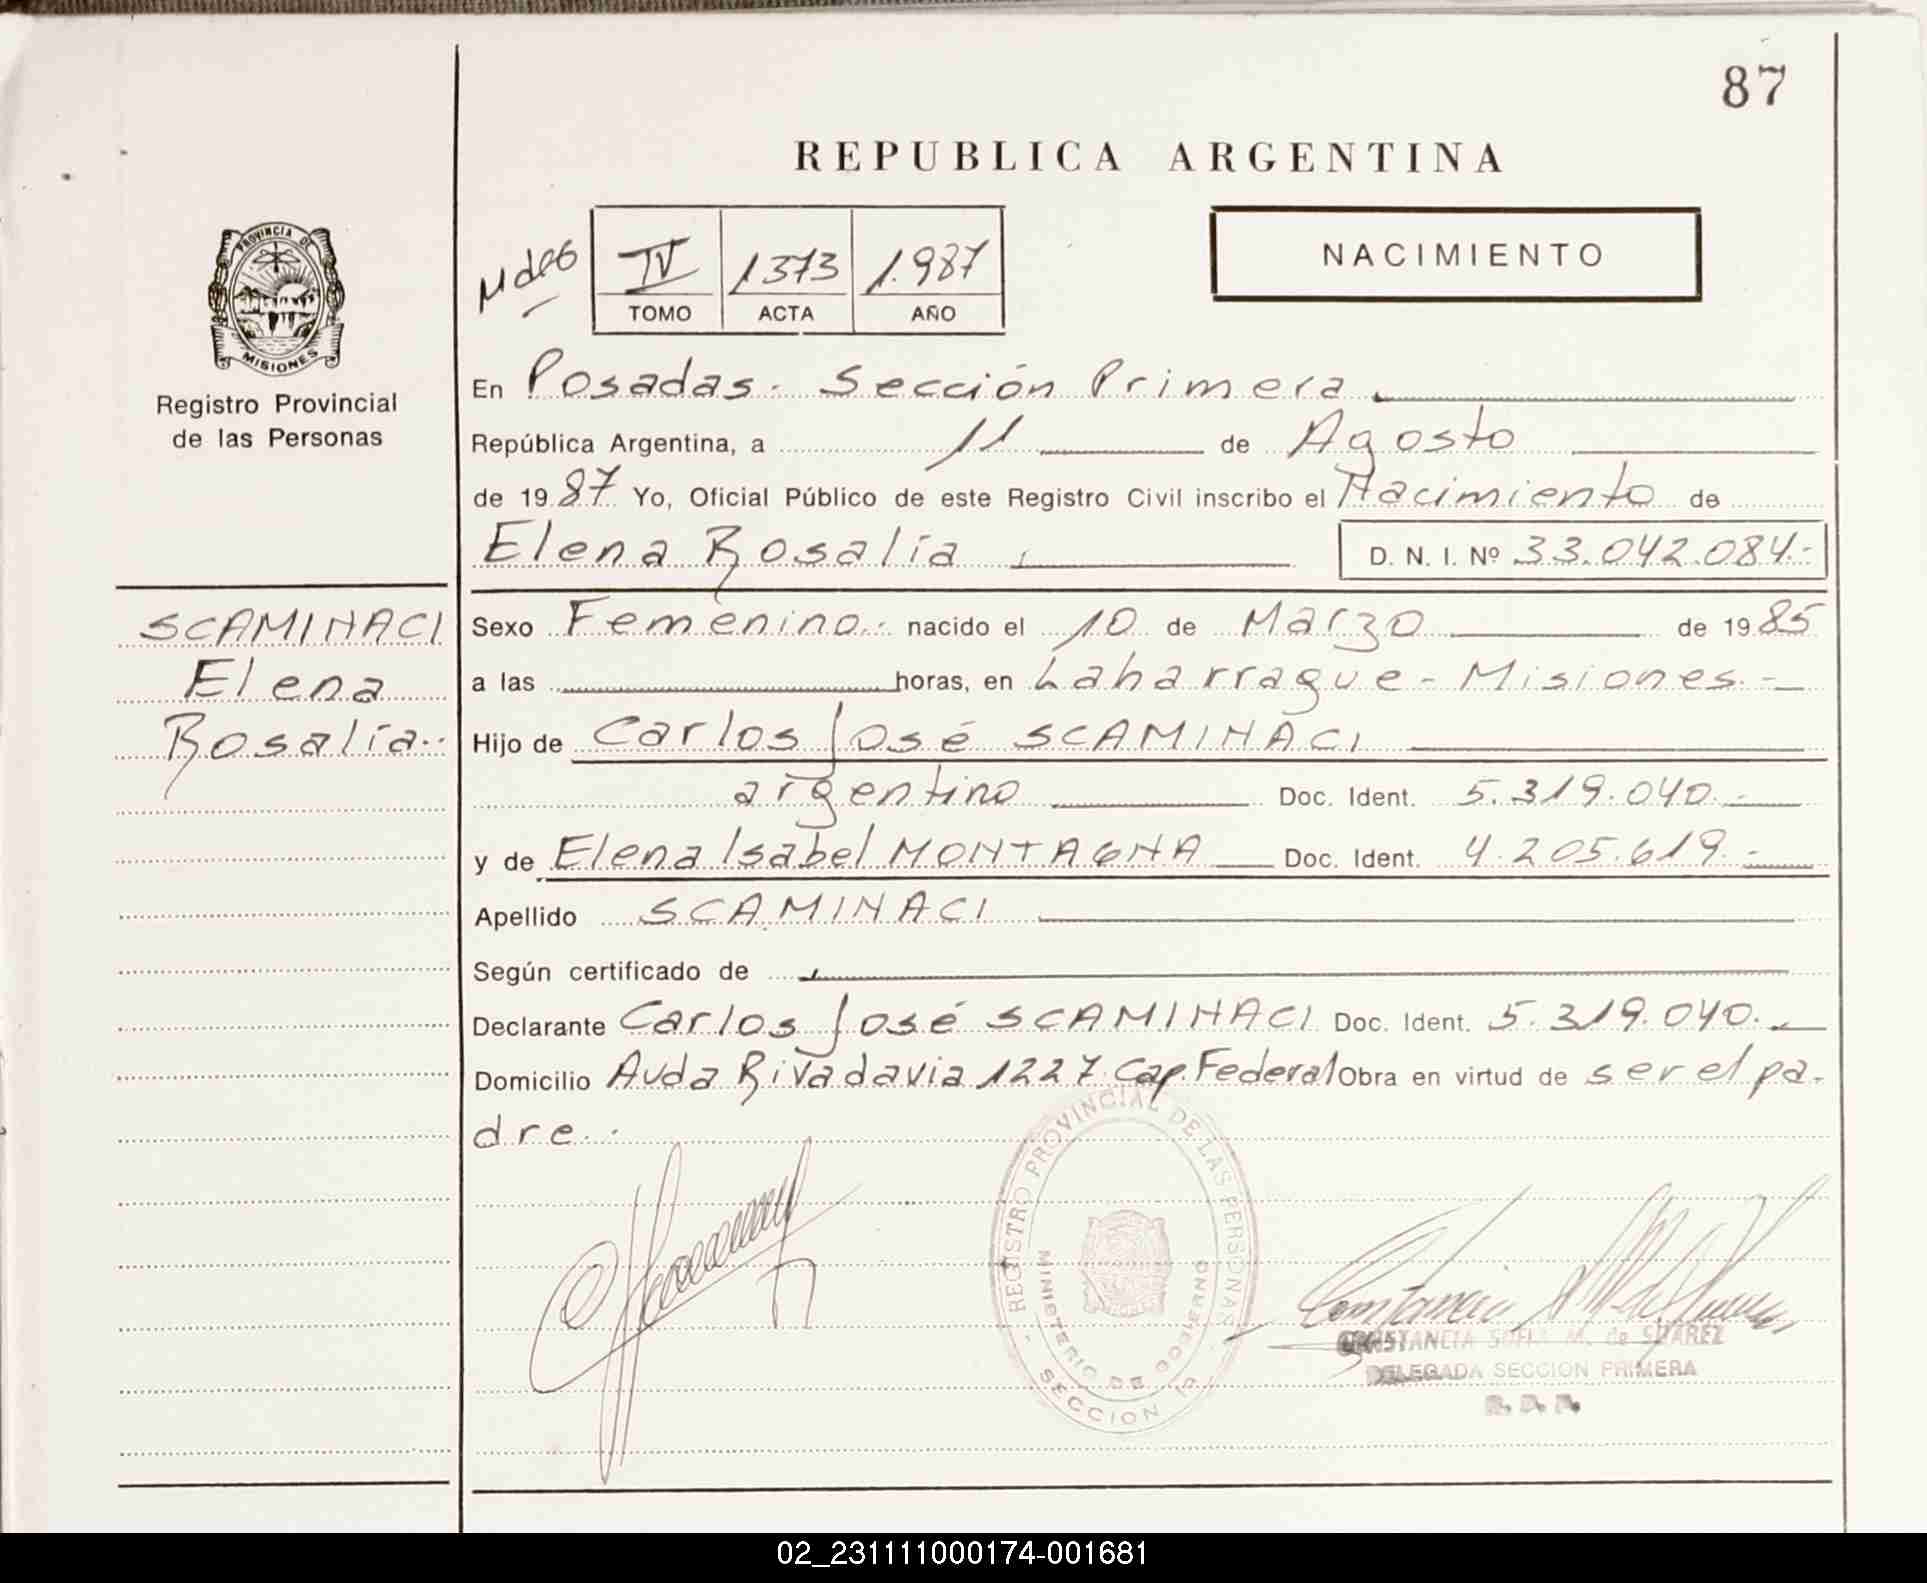 87
REPUBLICA ARGENTINA
PROVINCIA DE
MISIONES
Registro Provincial
de las Personas
IV 1373 1.987
TOMO ACTA AÑO
NACIMIENTO
En Posadas - Sección Primera
República Argentina, a 11 de Agosto
de 1987 Yo, Oficial Público de este Registro Civil inscribo el Nacimiento de
Elena Rosalía D. N. I. Nº 33.042.084.-
SCAMINACI
Elena
Rosalía.-
Sexo Femenino.- nacido el 10 de Marzo de 1985
a las horas, en Laharrague - Misiones.-
Hijo de Carlos José SCAMINACI
argentino Doc. Ident. 5.319.040.-
y de Elena Isabel MONTAGNA Doc. Ident. 4.205.619.-
Apellido SCAMINACI
Según certificado de
Declarante Carlos José SCAMINACI Doc. Ident. 5.319.040.-
Domicilio Avda Rivadavia 1227 Cap. Federal Obra en virtud de ser el pa-
dre.-
REGISTRO PROVINCIAL DE LAS PERSONAS
MINISTERIO DE GOBIERNO
SECCION 1ª
CONSTANCIA SOFIA M. de SUAREZ
DELEGADA SECCION PRIMERA
R. P. P.
02_231111000174-001681